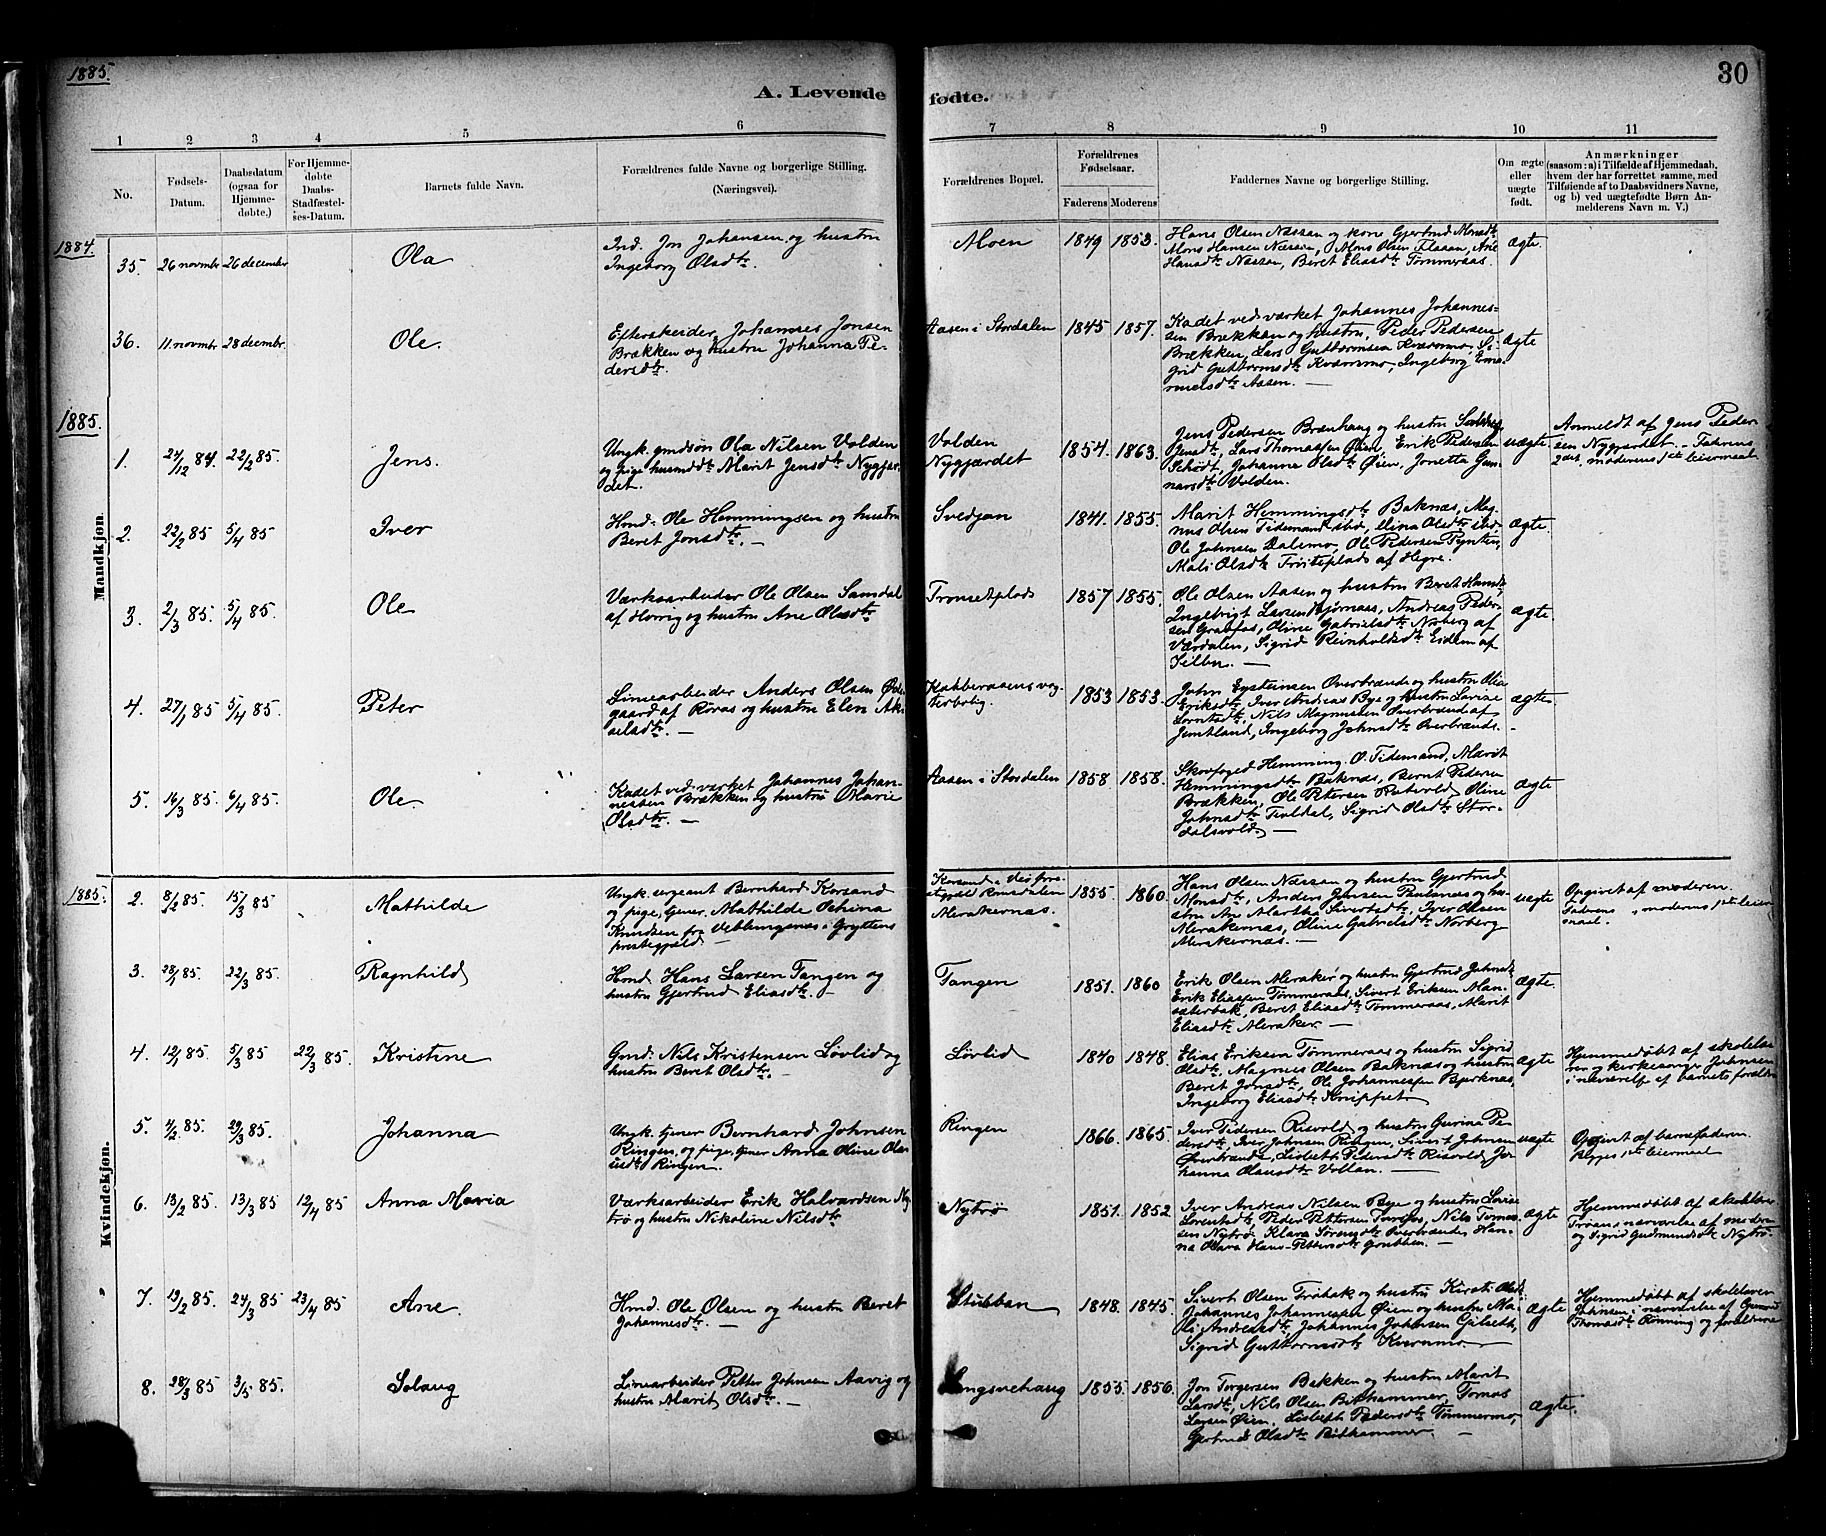 1885.
30
A. Levende fødte.
1 2 3 4 5 6 7 8 9 10 11
No.
Fødsels-
Datum.
Daabsdatum
(ogsaa for
Hjemme-
døbte.)
For Hjemme-
døbte
Daabs-
Stadfæstel-
ses-Datum.
Barnets fulde Navn.
Forældrenes fulde Navne og borgerlige Stilling.
(Næringsvei).
Forældrenes Bopæl.
Forældrenes
Fødselsaar.
Faderens Moderens
Faddernes Navne og borgerlige Stilling.
Om ægte
eller
uægte
født.
Anmærkninger
(saasom: a) i Tilfælde af Hjemmedaab,
hvem der har forrettet samme, med
Tilføiende af to Daabsvidners Navne,
og b) ved uægtefødte Børn An-
melderens Navn m. V.)
Mandkjøn.
1884.
35. 26 novmbr 26 december
Ola
Ind. Jon Johansen og hustru
Ingeborg Olsdtr.
Moen
1849 1853.
Hans Olsen Næssan og kone Gjertrud Monsdtr
Mons Hansen Næssan, Mons Olsen Flaaan, Ane
Hansdtr Næssan, Beret Eliasdtr Tømmeraas.
ægte
36. 11. novmbr 28 decembr.
Ole.
Efterskeider Johannes Jonsen
Brækken og hustru Johanna Pe-
dersdtr.
Aasen i Stordalen
1845 1857.
Kadet ved værket Johannes Johannes-
sen Brækken og hustru, Peder Pedersen
Brækken, Lars Guttormsen Kværnmo, Si-
grid Guttormsdtr Kværnmo, Ingeborg Em-
melsdtr Aasen. —
ægte
1885.
1. 24/12 84. 22/2 85.
Jens.
Ungk. gmdsøn Ola Nilsen Volden
og pige husmdtr Marit Jensdtr Nygjær-
det.
Volden
Nygjærdet
1854. 1863.
Jens Pedersen Brænhaug og hustru
Jensdtr, Lars Thomassen Øien, Erik Pedersen
Schødt, Johanna Olsdtr Øien, Jonetta Gun-
narsdtr Volden.
uægte
Anmeldt af Jens Peder-
sen Nygjærdet. - Faderens
2det, moderens 1ste leiermaal.
2. 22/2 85 5/4 85
Iver
Hmd. Ole Hemmingsen og hustru
Beret Jonsdtr. —
Svedjan
1841. 1855.
Marit Hemmingsdtr Baknæs, Mag-
nus Olsen Tidemand ibid, Elina Olsdtr ibid
Ole Johnsen Dalemo, Ole Pedersen Pynten,
Mali Olsdtr Tristeplads af Hegre.
ægte
3. 2/3 85. 5/4 85.
Ole
Værksarbeider Ole Olsen Samdal
af Horrig og hustru Ane Olsdtr
Tronsetplads
1857 1855.
Ole Olsen Aasen og hustru Beret Hansdtr,
Ingebrigt Larsen Bjørnaas, Andreas Peder-
sen Graafos, Oline Gabrielsdtr Norberg af
Værdalen, Sigrid Reinholdsdtr Eidem af
Selbu. —
ægte.
4. 27/1 85 5/4 85.
Peter
Liniearbeider Anders Olsen Øde-
gaard af Røros og hustru Elen Ak-
selsdtr. —
Kobberaasens vog-
terbolig.
1853 1853.
John Eysteinsen Overbrænde og hustru Olia
Eriksdtr, Iver Andreas Bye og hustru Lovise
Lorntsdtr, Nils Magnussen Overbrænd af
Jemtland, Ingeborg Johnsdtr Overbrænde.
ægte
5. 14/3 85. 6/4 85.
Ole
Kadet ved værket Johannes Johan-
nessen Brækken og hustru Marie
Olsdtr. —
Aasen i Stordalen
1858 1858.
Skovfoged Hemming O. Tidemand, Marit
Hemmingsdtr Baknæs, Bernt Pedersen
Brækken, Ole Petersen Reitvold, Oline
Johnsdtr Tevldal, Sigrid Olsdtr Stor-
dalsvold. —
ægte
Kvindekjøn.
1885.
2. 8/2 85. 15/3 85
Mathilde
Ungk. sergeant Bernhard Korsand
og pige, tjener Mathilde Ochina
Knudsen fra Veblungsnæs i Gryttens
prestegjæld —
Korsand i
Romsdalen
Merakernæs.
1855. 1860.
Hans Olsen Næssan og hustru Gjertrud
Monsdtr, Anders Jensen Paulanæs og hu-
stru An Martha Sivertsdtr, Iver Olsen
Merakernæs, Oline Gabrielsdtr Norberg
Merakernæs. —
uægte
Opgivet af moderen.
Faderens , moderens 1ste leier-
maal.
3. 28/1 85. 22/3 85.
Ragnhild
Hmd. Hans Larsen Tangen og
hustru Gjertrud Eliasdtr. —
Tangen
1851. 1860
Erik Olsen Meraker og hustru Gjertrud Johnsdtr
Erik Eliassen Tømmeraas, Sivert Eriksen Man-
sæterbak, Beret Eliasdtr Tømmeraas, Marit
Eliasdtr Meraker. —
ægte.
4. 12/1 85. 5/3 85 22/3 85.
Kristine
Gmd. Nils Kristensen Løvlid og
hustru Beret Olsdtr. —
Løvlid
1840 1848.
Elias Eriksen Tømmeraas og hustru Sigrid
Olsdtr, Magnus Olsen Baknæs og hustru
Beret Jonsdtr, Ole Johannessen Bjerknæs,
Ingeborg Eliasdtr Knippet —
ægte
Hjemmedøbt af skolelæ-
rer og kirkesanger Johnsen
i nærværelse af barnets forældre
5. 4/2 85. 29/3 85.
Johanna
Ungk. tjener Bernhard Johnsen
Ringen, og pige, tjener Anna Oline Ola-
usdtr Ringen.
Ringen
1866. 1865.
Iver Pedersen Risvold og hustru Gurina Pe-
dersdtr, Iver Johnsen Ringen, Sivert Johnsen
Overbrænde, Lisbeth Pedersdtr Risvold, Jo-
hanna Olausdtr Vollan. —
uægte
Opgivet af barnefaderen.
Begges 1ste leiermaal
6. 13/2 85. 13/3 85 12/4 85.
Anna Maria
Værksarbeider Erik Halvardsen Ny-
trø og hustru Nikoline Nilsdtr
Nytrø
1851. 1852.
Iver Andreas Nilsen Bye og hustru Lovise
Lorentsdtr, Peder Pettersen Turifos, Nils Tomas-
sen Nytrø, Klara Sørensdtr Overbrænde, Han-
na Olava Hans-Pettersdtr Grubben. —
ægte
Hjemmedøbt af skolelærer
Trøan i nærværelse af moderen
og Sigrid Gudmundsdtr Nytrø.
7. 19/2 85. 24/3 85 23/4 85
Ane.
Hmd. Ole Olsen og hustru Beret
Johannesdtr. —
Stubban
1848. 1845.
Sivert Olsen Fribak og hustru Kirsti Olsdtr
Johannes Johannessen Øien og hustru Ma-
li Andreasdtr, Johannes Johnsen Gilseth,
Sigrid Guttormsdtr Kværnmo —
ægte
Hjemmedøbt af skolelærer
Johnsen i nærværelse af
Thomasdtr Rønning og forældrene
8. 28/3 85 3/5 85.
Solaug
Liniearbeider Petter Johnsen Aavig og
hustru Marit Olsdtr. —
Langsvehaug
1855. 1856.
Jon Torgersen Bakken og hustru Marit
Larsdtr, Nils Olsen Bithammer, Tomas
Larsen Øien, Lisbeth Pedersdtr Tømmermo,
Gjertrud Olsdtr Bithammer. —
ægte.